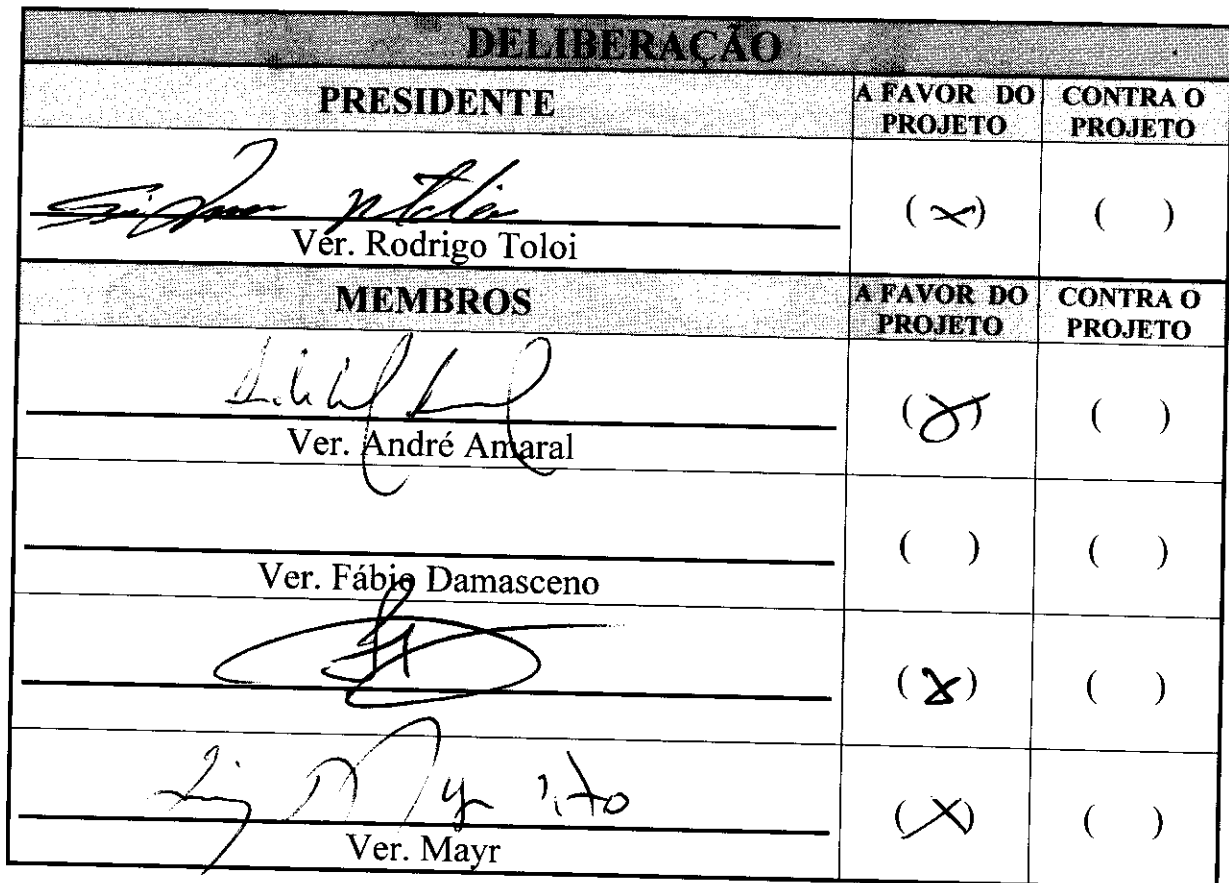 DELIBERAÇÃO
PRESIDENTE A FAVOR DO PROJETO CONTRA O PROJETO
Ver. Rodrigo Toloi (X) ( )
MEMBROS A FAVOR DO PROJETO CONTRA O PROJETO
Ver. André Amaral (X) ( )
Ver. Fábio Damasceno ( ) ( )
(X) ( )
Ver. Mayr (X) ( )